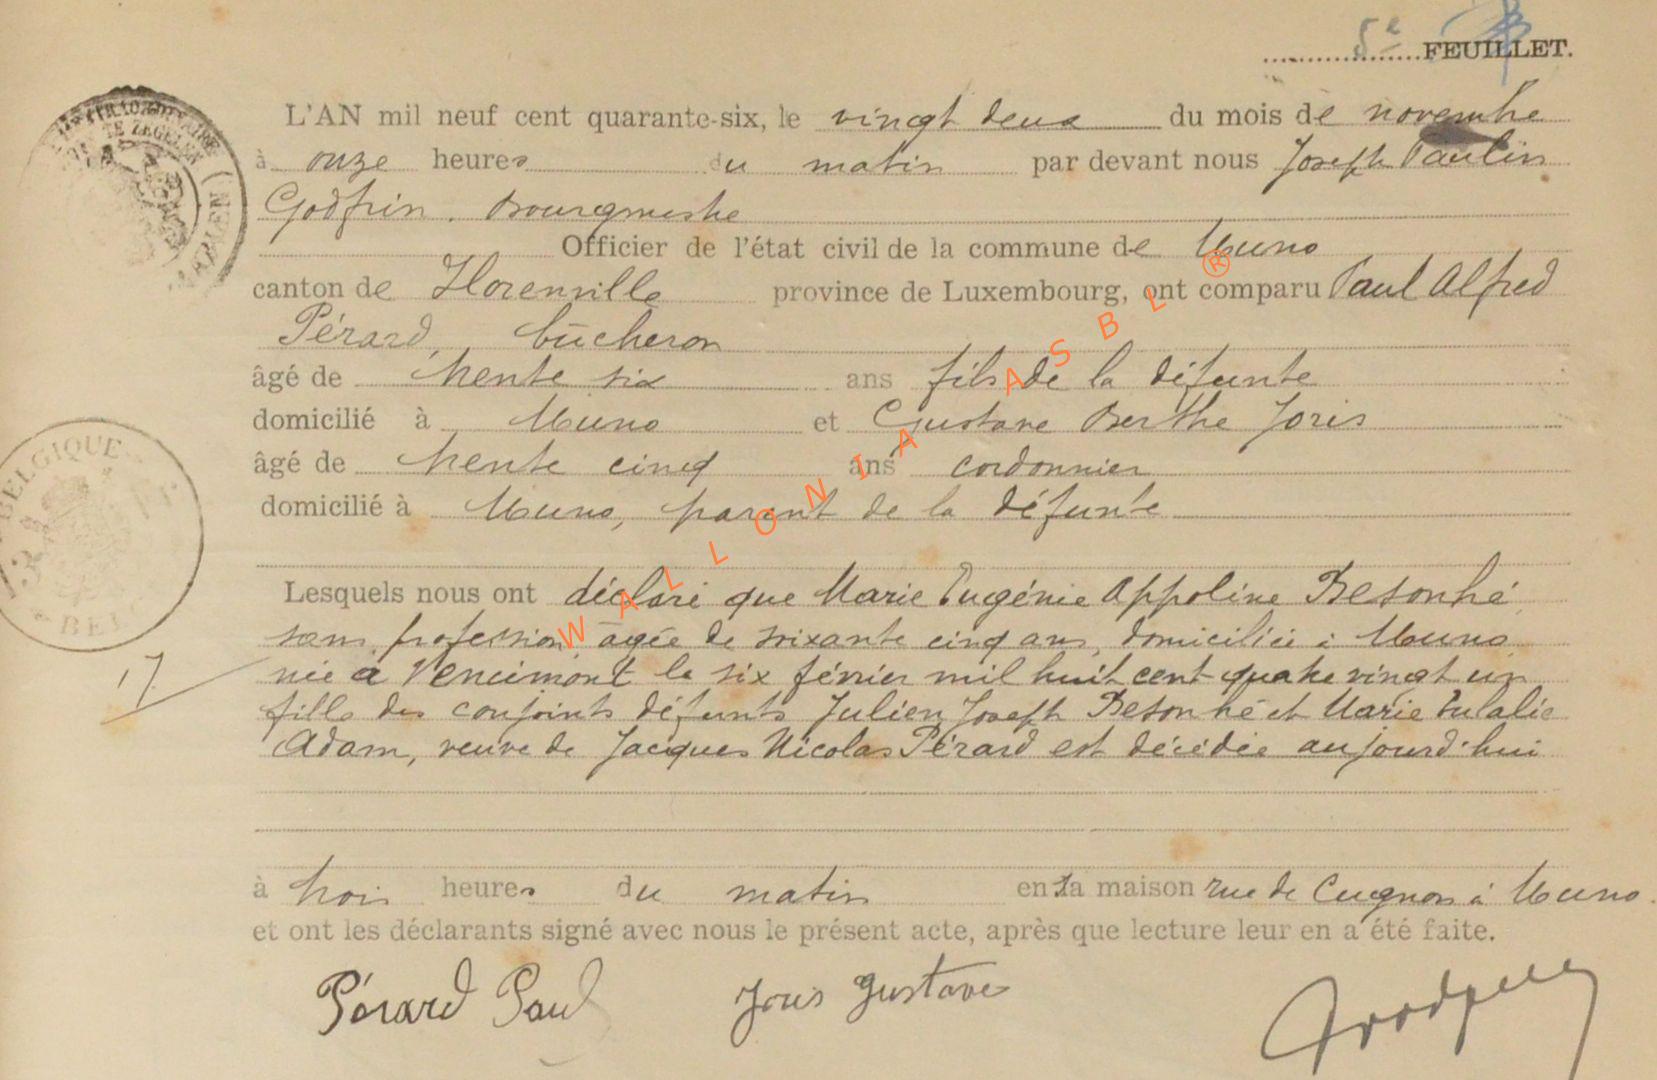 5e FEUILLET.
L'AN mil neuf cent quarante-six, le vingt deux du mois de novembre
à onze heures du matin par devant nous Joseph Paulin
Godfrin, Bourgmestre
Officier de l'état civil de la commune de Muno
canton de Florenville province de Luxembourg, ont comparu Paul Alfred
Pérard, bûcheron
âgé de trente six ans fils de la défunte
domicilié à Muno et Gustave Berthe Joris
âgé de trente cinq ans cordonnier
domicilié à Muno, parent de la défunte
Lesquels nous ont déclaré que Marie Eugénie Appoline Besonhé,
sans profession, âgée de soixante cinq ans, domiciliée à Muno
née à Vencimont le six février mil huit cent quatre vingt un
fille des conjoints défunts Julien Joseph Besonhé et Marie Eulalie
Adam, veuve de Jacques Nicolas Pérard est décédée aujourd'hui
17
à trois heures du matin en sa maison rue de Cugnon à Muno.
et ont les déclarants signé avec nous le présent acte, après que lecture leur en a été faite.
Pérard Paul Joris Gustave
BELGIQUE
WALLONIA ASBL ®